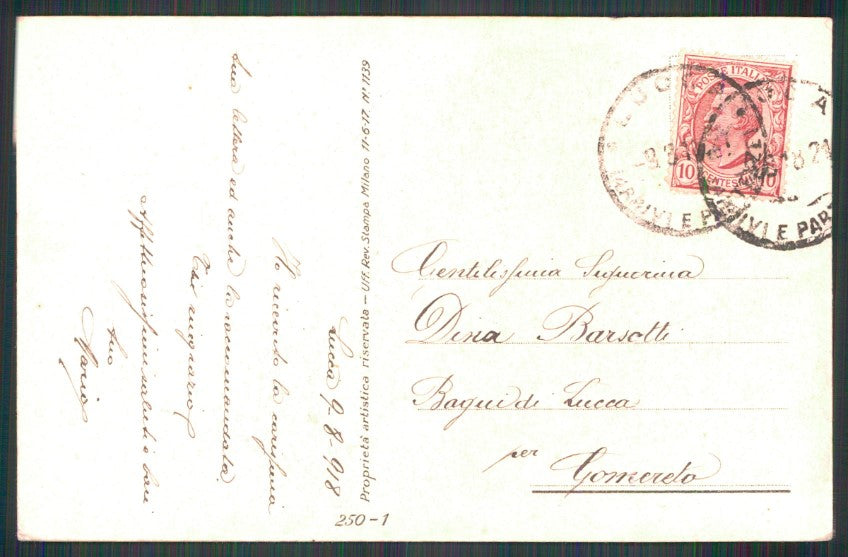 Lucca 9-8-918
Ho ricevuto la carissima
sua lettera ed anche la raccomandata.
La ringrazio
Affettuosissimi saluti e baci
suo
Mario
Proprietà artistica riservata – Uff. Rev. Stampa Milano 11-6-17. N° 1139
250-1
POSTE ITALIANE
10 CENTESIMI 10
LUCCA
ARRIVI E PAR
Gentilissima Signorina
Dina Barsotti
Bagni di Lucca
per